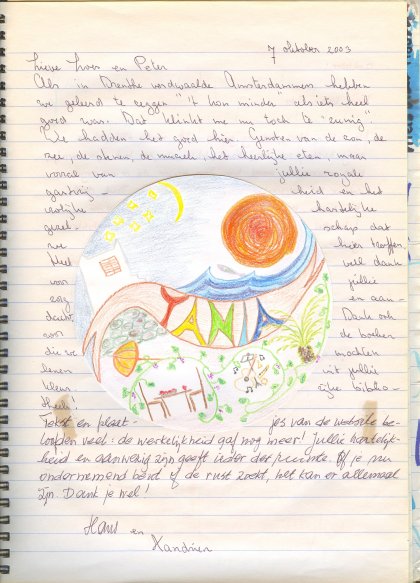 7 oktober 2003
Lieve Loes en Peter
Als in Drenthe verdwaalde Amsterdammers hebben
we geleerd te zeggen "'t kon minder" als iets heel
goed was. Dat klinkt me nu toch te "zuinig"
We hadden het goed hier. Genoten van de zon, de
zee, de sterren, de muziek, het heerlijke eten, maar
vooral van jullie royale
gastvrij heid en het
hartelijke
gezel- schap dat
we hier troffen.
Heel veel dank
voor jullie
zorg en aan-
dacht. Dank ook
voor de boeken
die we mochten
lenen uit jullie
kleur- ijke biblio-
theek!
YANIA
Tekst en plaat- jes van de website be-
loofden veel: de werkelijkheid gaf nog meer! jullie hartelijk-
heid en aanwezig zijn geeft ieder de ruimte. Of je nu
ondernemend bent of de rust zoekt, het kan er allemaal
zijn. Dank je wel!
Hans en